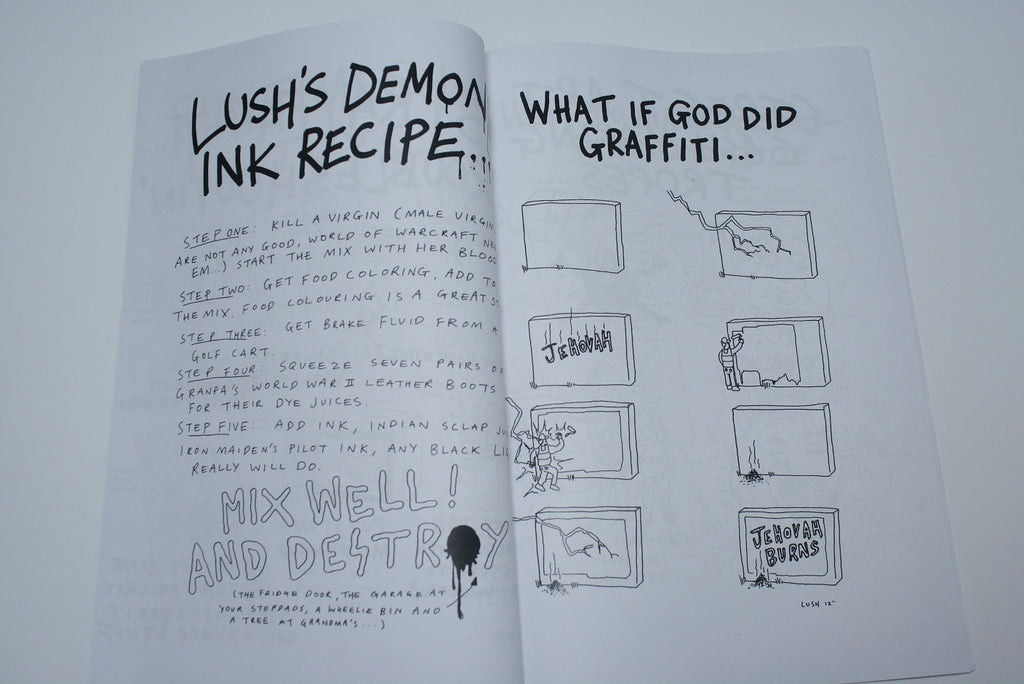 LUSH'S DEMON
INK RECIPE...
STEP ONE: KILL A VIRGIN (MALE VIRGIN
ARE NOT ANY GOOD, WORLD OF WARCRAFT NE
EM...) START THE MIX WITH HER BLOO
STEP TWO: GET FOOD COLORING, ADD TO
THE MIX. FOOD COLOURING IS A GREAT ST
STEP THREE: GET BRAKE FLUID FROM A
GOLF CART.
STEP FOUR: SQUEEZE SEVEN PAIRS OF
GRANPA'S WORLD WAR II LEATHER BOOTS
FOR THEIR DYE JUICES.
STEP FIVE: ADD INK, INDIAN SCLAP JU
IRON MAIDEN'S PILOT INK, ANY BLACK LI
REALLY WILL DO.
MIX WELL!
AND DESTROY
(THE FRIDGE DOOR, THE GARAGE AT
YOUR STEPDADS, A WHEELIE BIN AND
A TREE AT GRANDMA'S...)
WHAT IF GOD DID
GRAFFITI...
JEHOVAH
JEHOVAH
BURNS
LUSH 12"